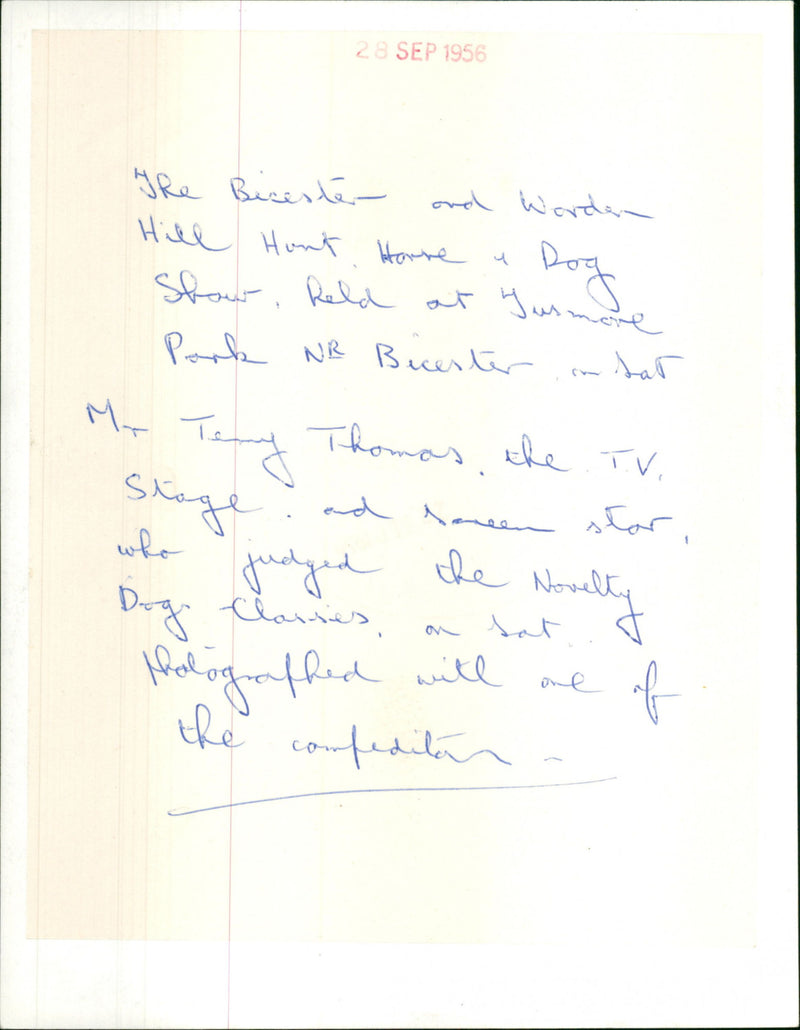 28 SEP 1956
The Bicester and Warden
Hill Hunt. Horse & Dog
Show, held at Tusmore
Park NR Bicester on Sat
Mr Terry Thomas, the T.V.
Stage, and screen star,
who judged the Novelty
Dog Classes, on Sat.
photographed with one of
the competitors -